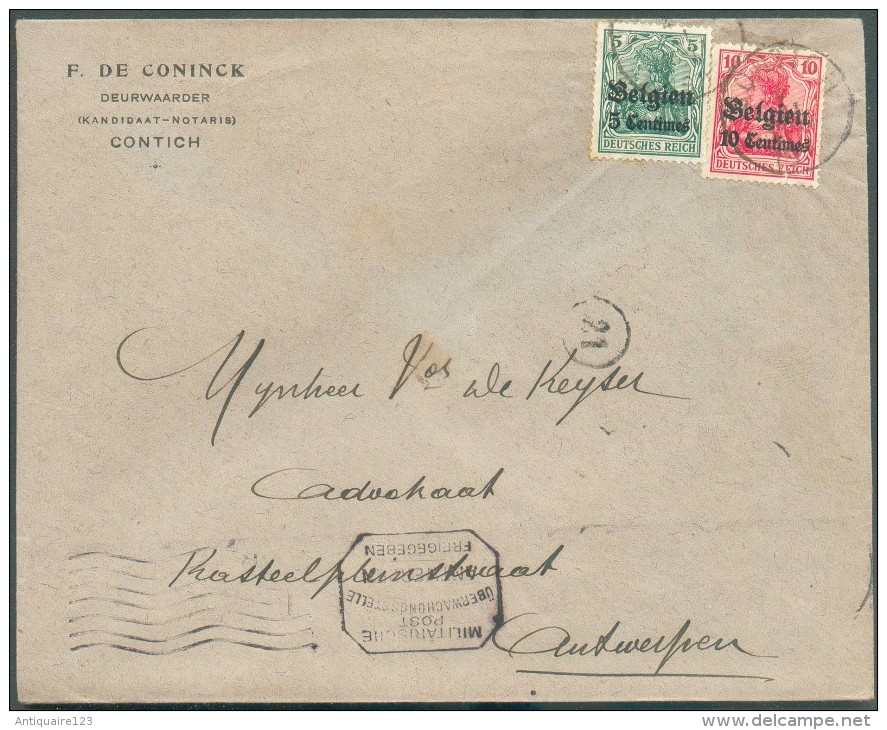 F. DE CONINCK
DEURWAARDER
(KANDIDAAT-NOTARIS)
CONTICH
5 5
Belgien
5 Centimes
DEUTSCHES REICH
10 10
Belgien
10 Centimes
DEUTSCHES REICH
21
Mynheer Vor De Keyser
Advokaat
Kasteelpleinstraat
Antwerpen
MILITÄRISCHE
POST
ÜBERWACHUNGSSTELLE
FREIGEGEBEN
Antiquaire123
delcampe.net